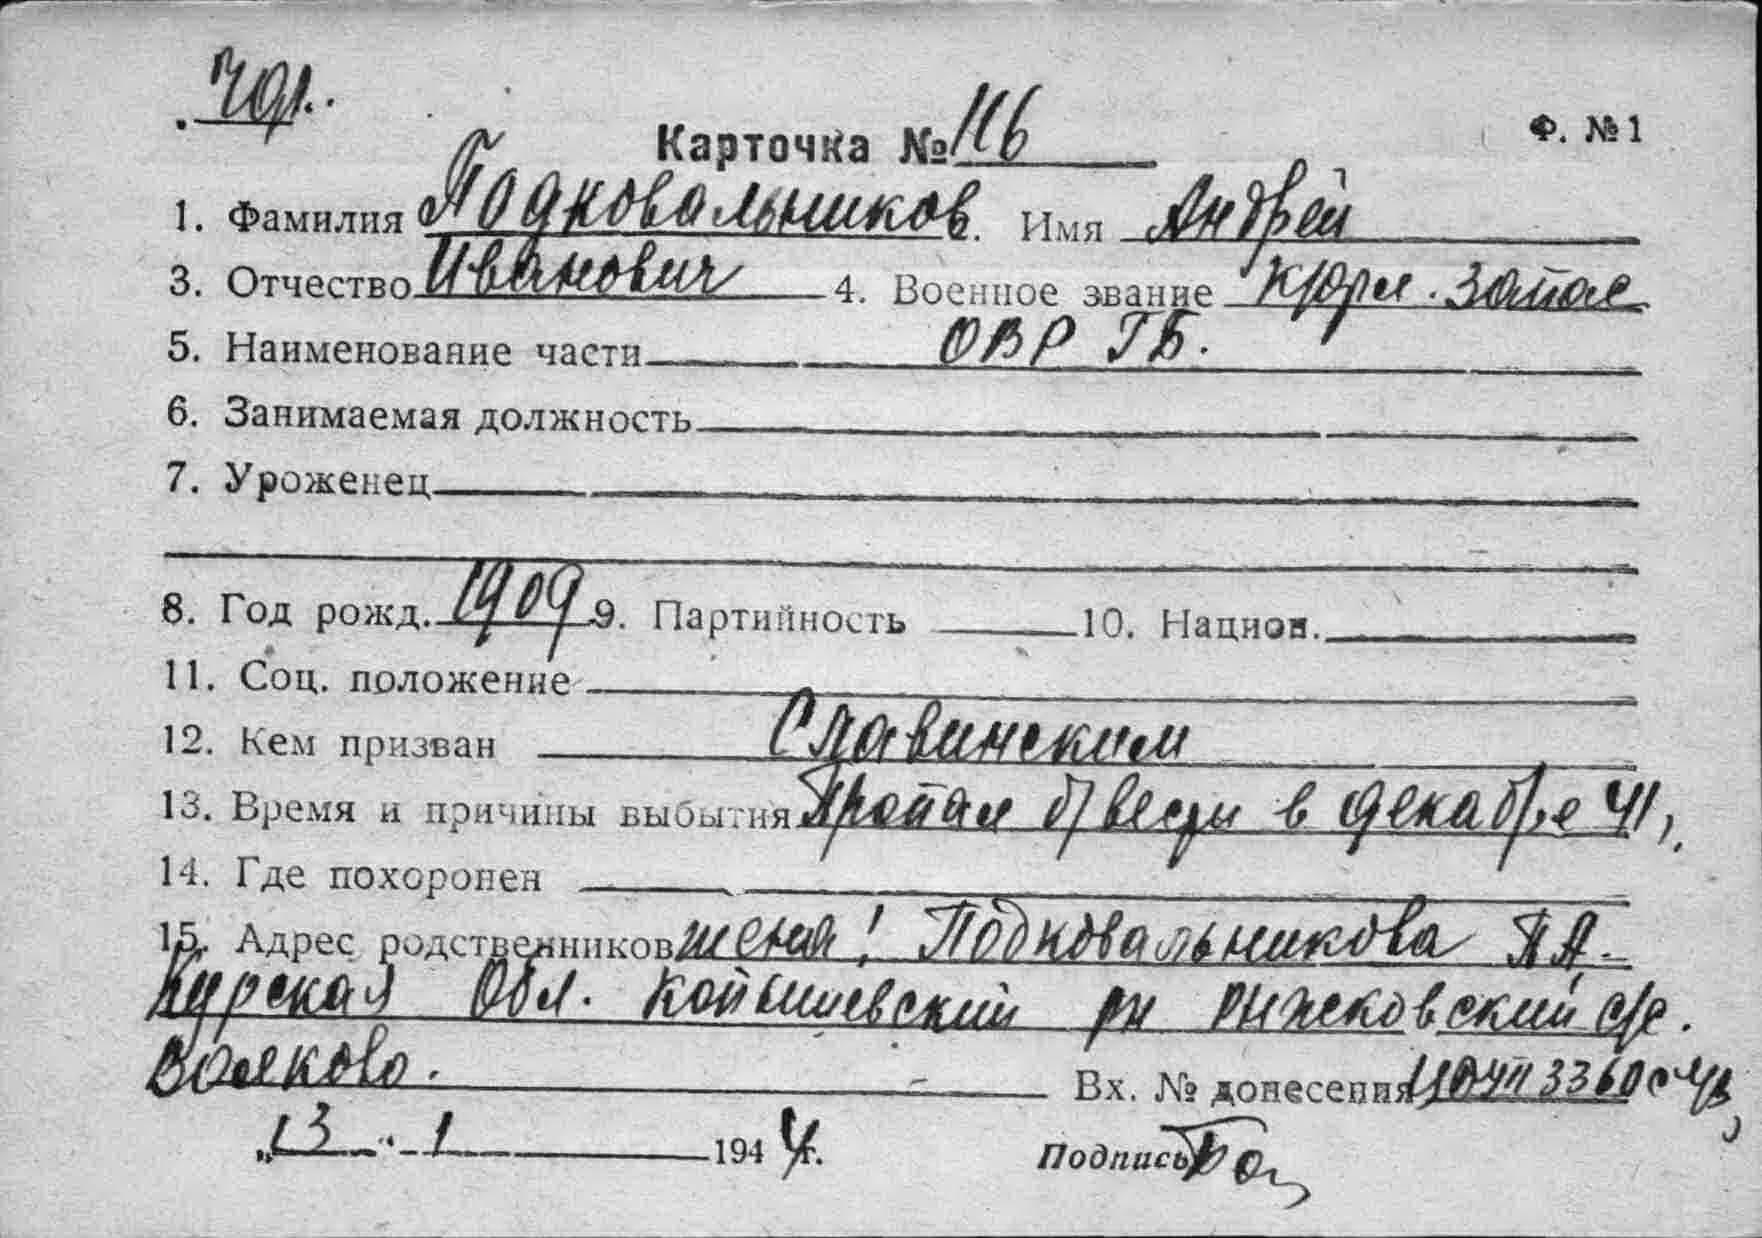 Карточка № 116
Ф. № 1
1. Фамилия Подковальников. Имя Андрей
3. Отчество Иванович 4. Военное звание кр/фл. запас
5. Наименование части ОВР ГБ.
6. Занимаемая должность
7. Уроженец
8. Год рожд. 1909 9. Партийность 10. Национ.
11. Соц. положение
12. Кем призван Славинским
13. Время и причины выбытия Пропал б/вести в декабре 41 г.
14. Где похоронен
15. Адрес родственников жена! Подковальникова П А.
Курская Обл. Копышевский рн Рыжковский с/с.
Волково.
Вх. № донесения
„13" 1 1944 г. Подпись